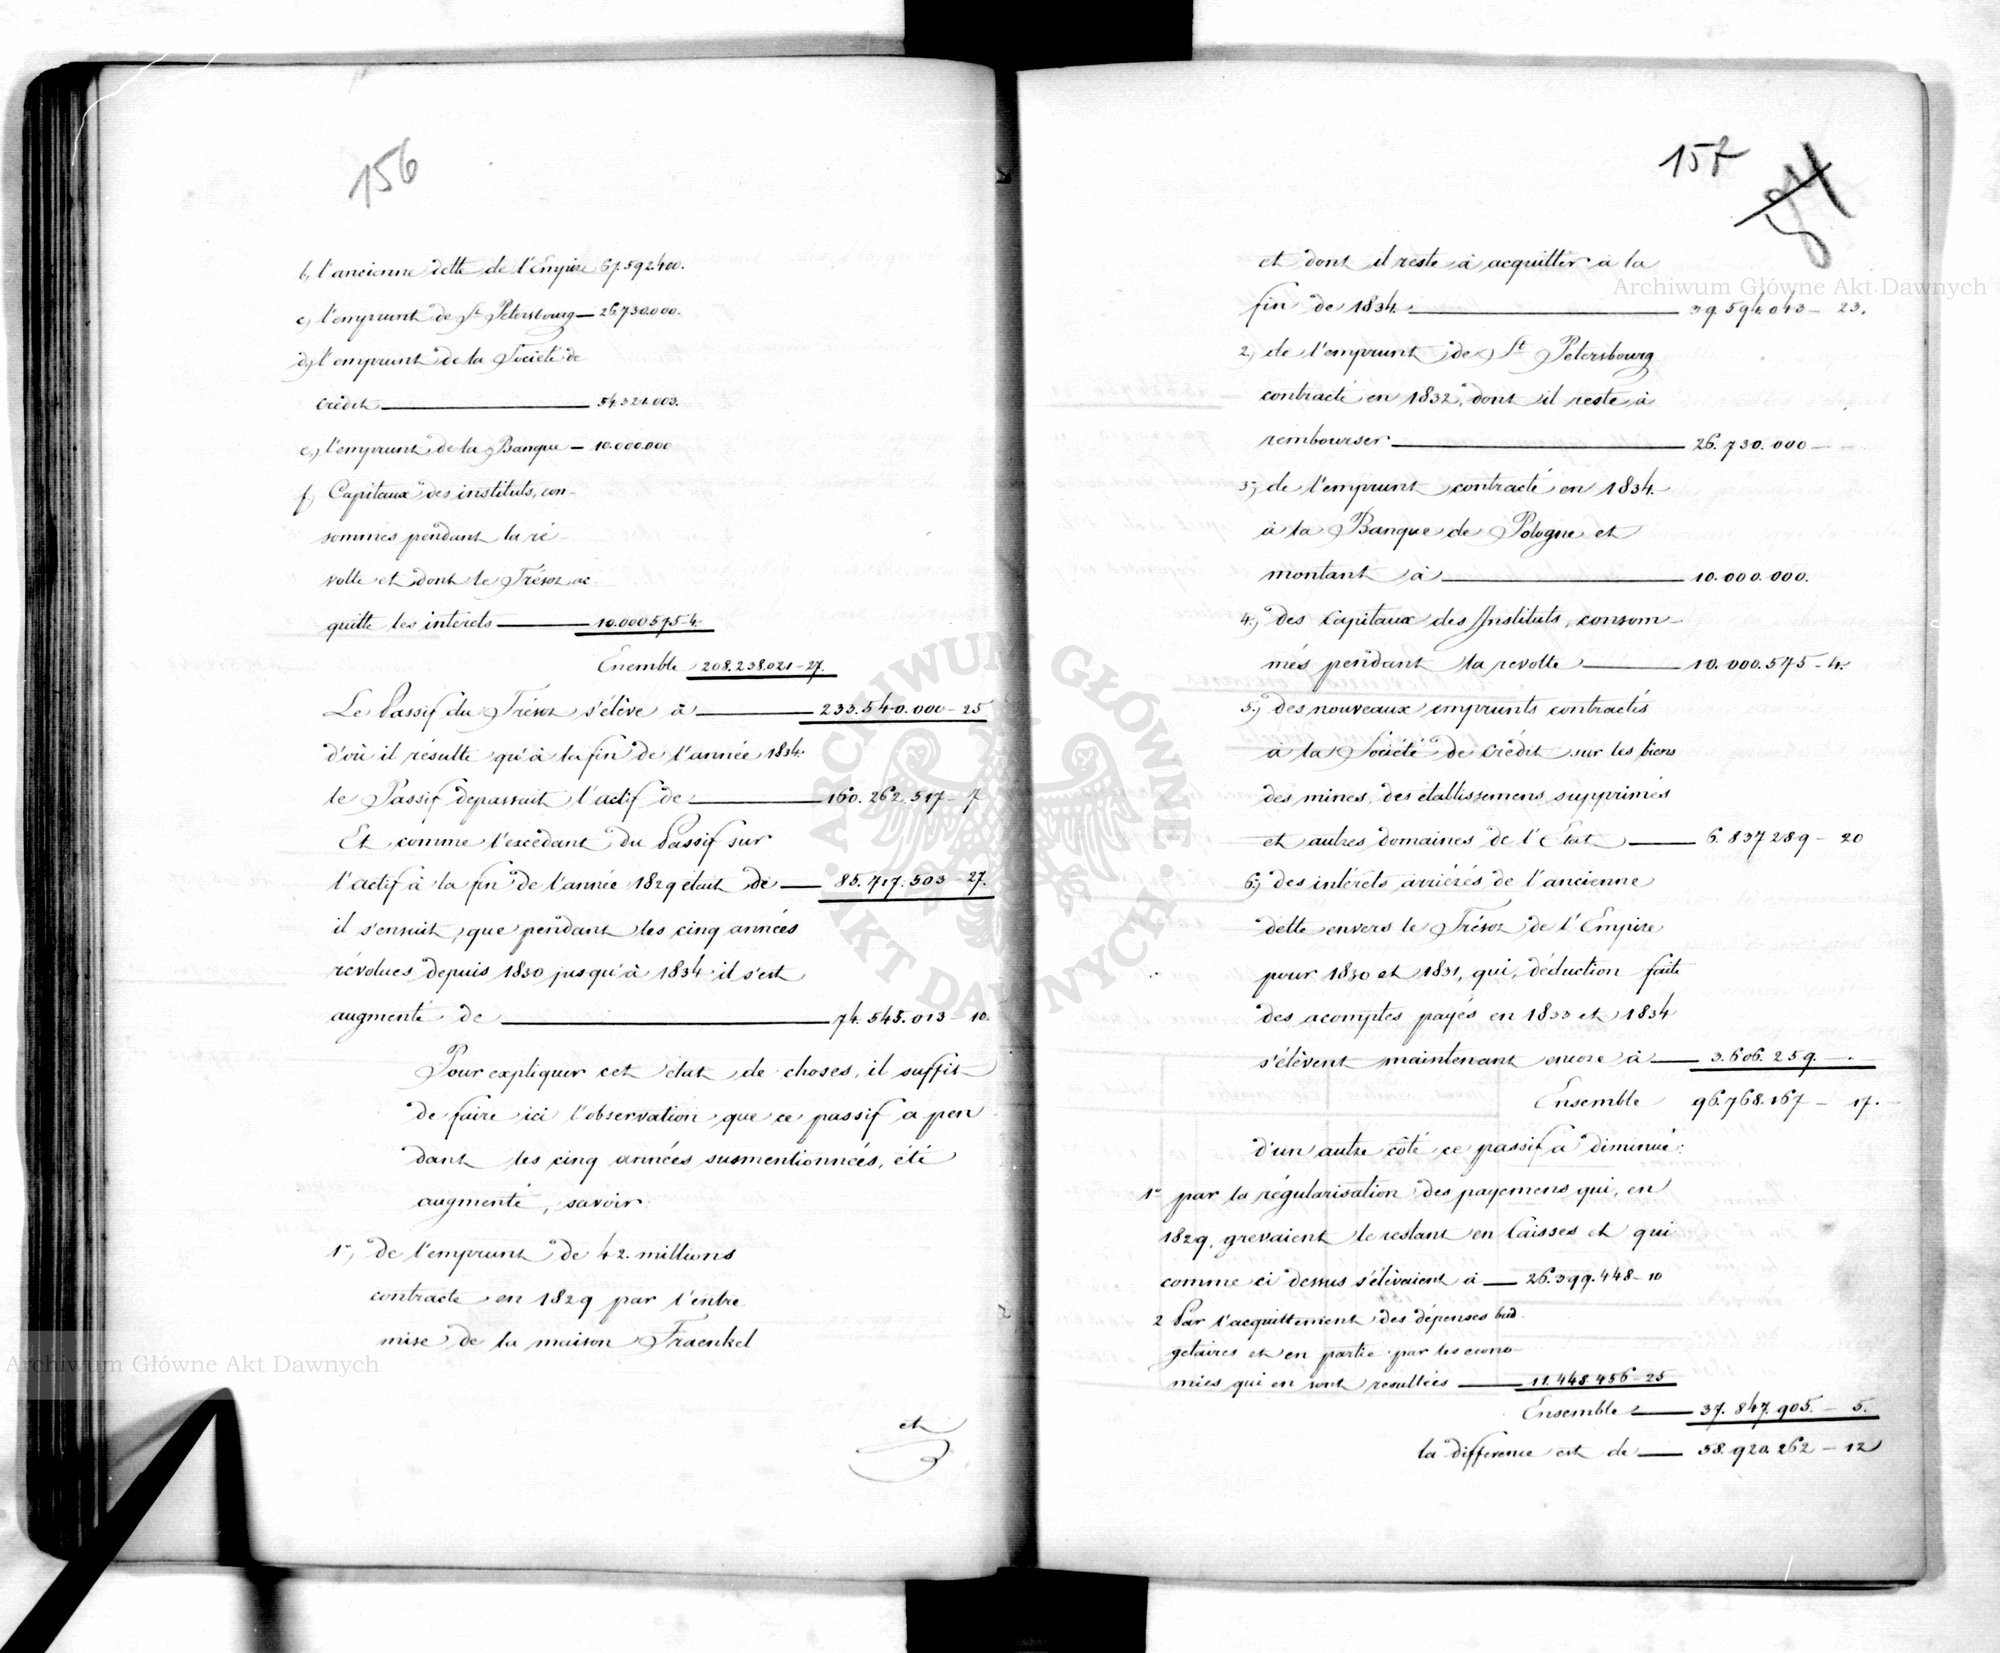 156
b, l'ancienne dette de l'Empire 67.592.400.
c, l'emprunt de St Petersbourg — 26.730.000.
d, l'emprunt de la Société de
crédit — 54.321.003.
e, l'emprunt de la Banque — 10.000.000
f, Capitaux des instituts, con-
sommés pendant la ré-
volte et dont le Trésor ac-
quitte les interets — 10.000575-4.
Enemble 208.238.021-27.
Le Passif du Trésor s'élève à — 233.540.000-25
d'où il résulte qu'à la fin de l'année 1834.
le Passif depassait l'actif de — 160.262.517-7
Et comme l'excédant du Passif sur
l'actif à la fin de l'année 1829 était de — 85.717.503-27.
il s'ensuit, que pendant les cinq années
révolues depuis 1830 jusqu'à 1834 il s'est
augmenté de — 74.545.013-10.
Pour expliquer cet état de choses, il suffit
de faire ici l'observation que ce passif a pen
dant les cinq années susmentionnées, été
augmenté, savoir:
1°, de l'emprunt de 42. millions
contracté en 1829 par l'entre
mise de la maison Fraenkel
et
157
et dont il reste à acquitter à la
fin de 1834. — 39.594.043-23.
2, de l'emprunt de St Petersbourg
contracté en 1832, dont il reste à
rembourser — 26.730.000-
3, de l'emprunt contracté en 1834.
à la Banque de Pologne et
montant à — 10.000.000.
4, des Capitaux des Instituts, consom-
més pendant la revolte — 10.000.575-4.
5, des nouveaux emprunts contractés
à la Société de Crédit sur les biens
des mines, des établissemens supprimés
et autres domaines de l'Etat — 6.837289-20
6, des intérêts arriérés de l'ancienne
dette envers le Trésor de l'Empire
pour 1830 et 1831, qui, déduction faite
des acomptes payés en 1833 et 1834
s'élèvent maintenant encore à — 3.606.259.-.
Ensemble 96.768.167-17.
d'un autre côté ce passif a diminué:
1° par la régularisation des payemens qui, en
1829, grevaient le restant en Caisses et qui
comme ci dessus s'élèvaient à — 26.399.448-10
2 Par l'acquittement des dépenses bud-
getaires et en partie par les econo-
mies qui en sont resultées — 11.448.456-25
Ensemble — 37.847.905.-5.
la différence est de — 58.920.262-12
Archiwum Główne Akt Dawnych
Archiwum Główne Akt Dawnych
ARCHIWUM GŁÓWNE AKT DAWNYCH